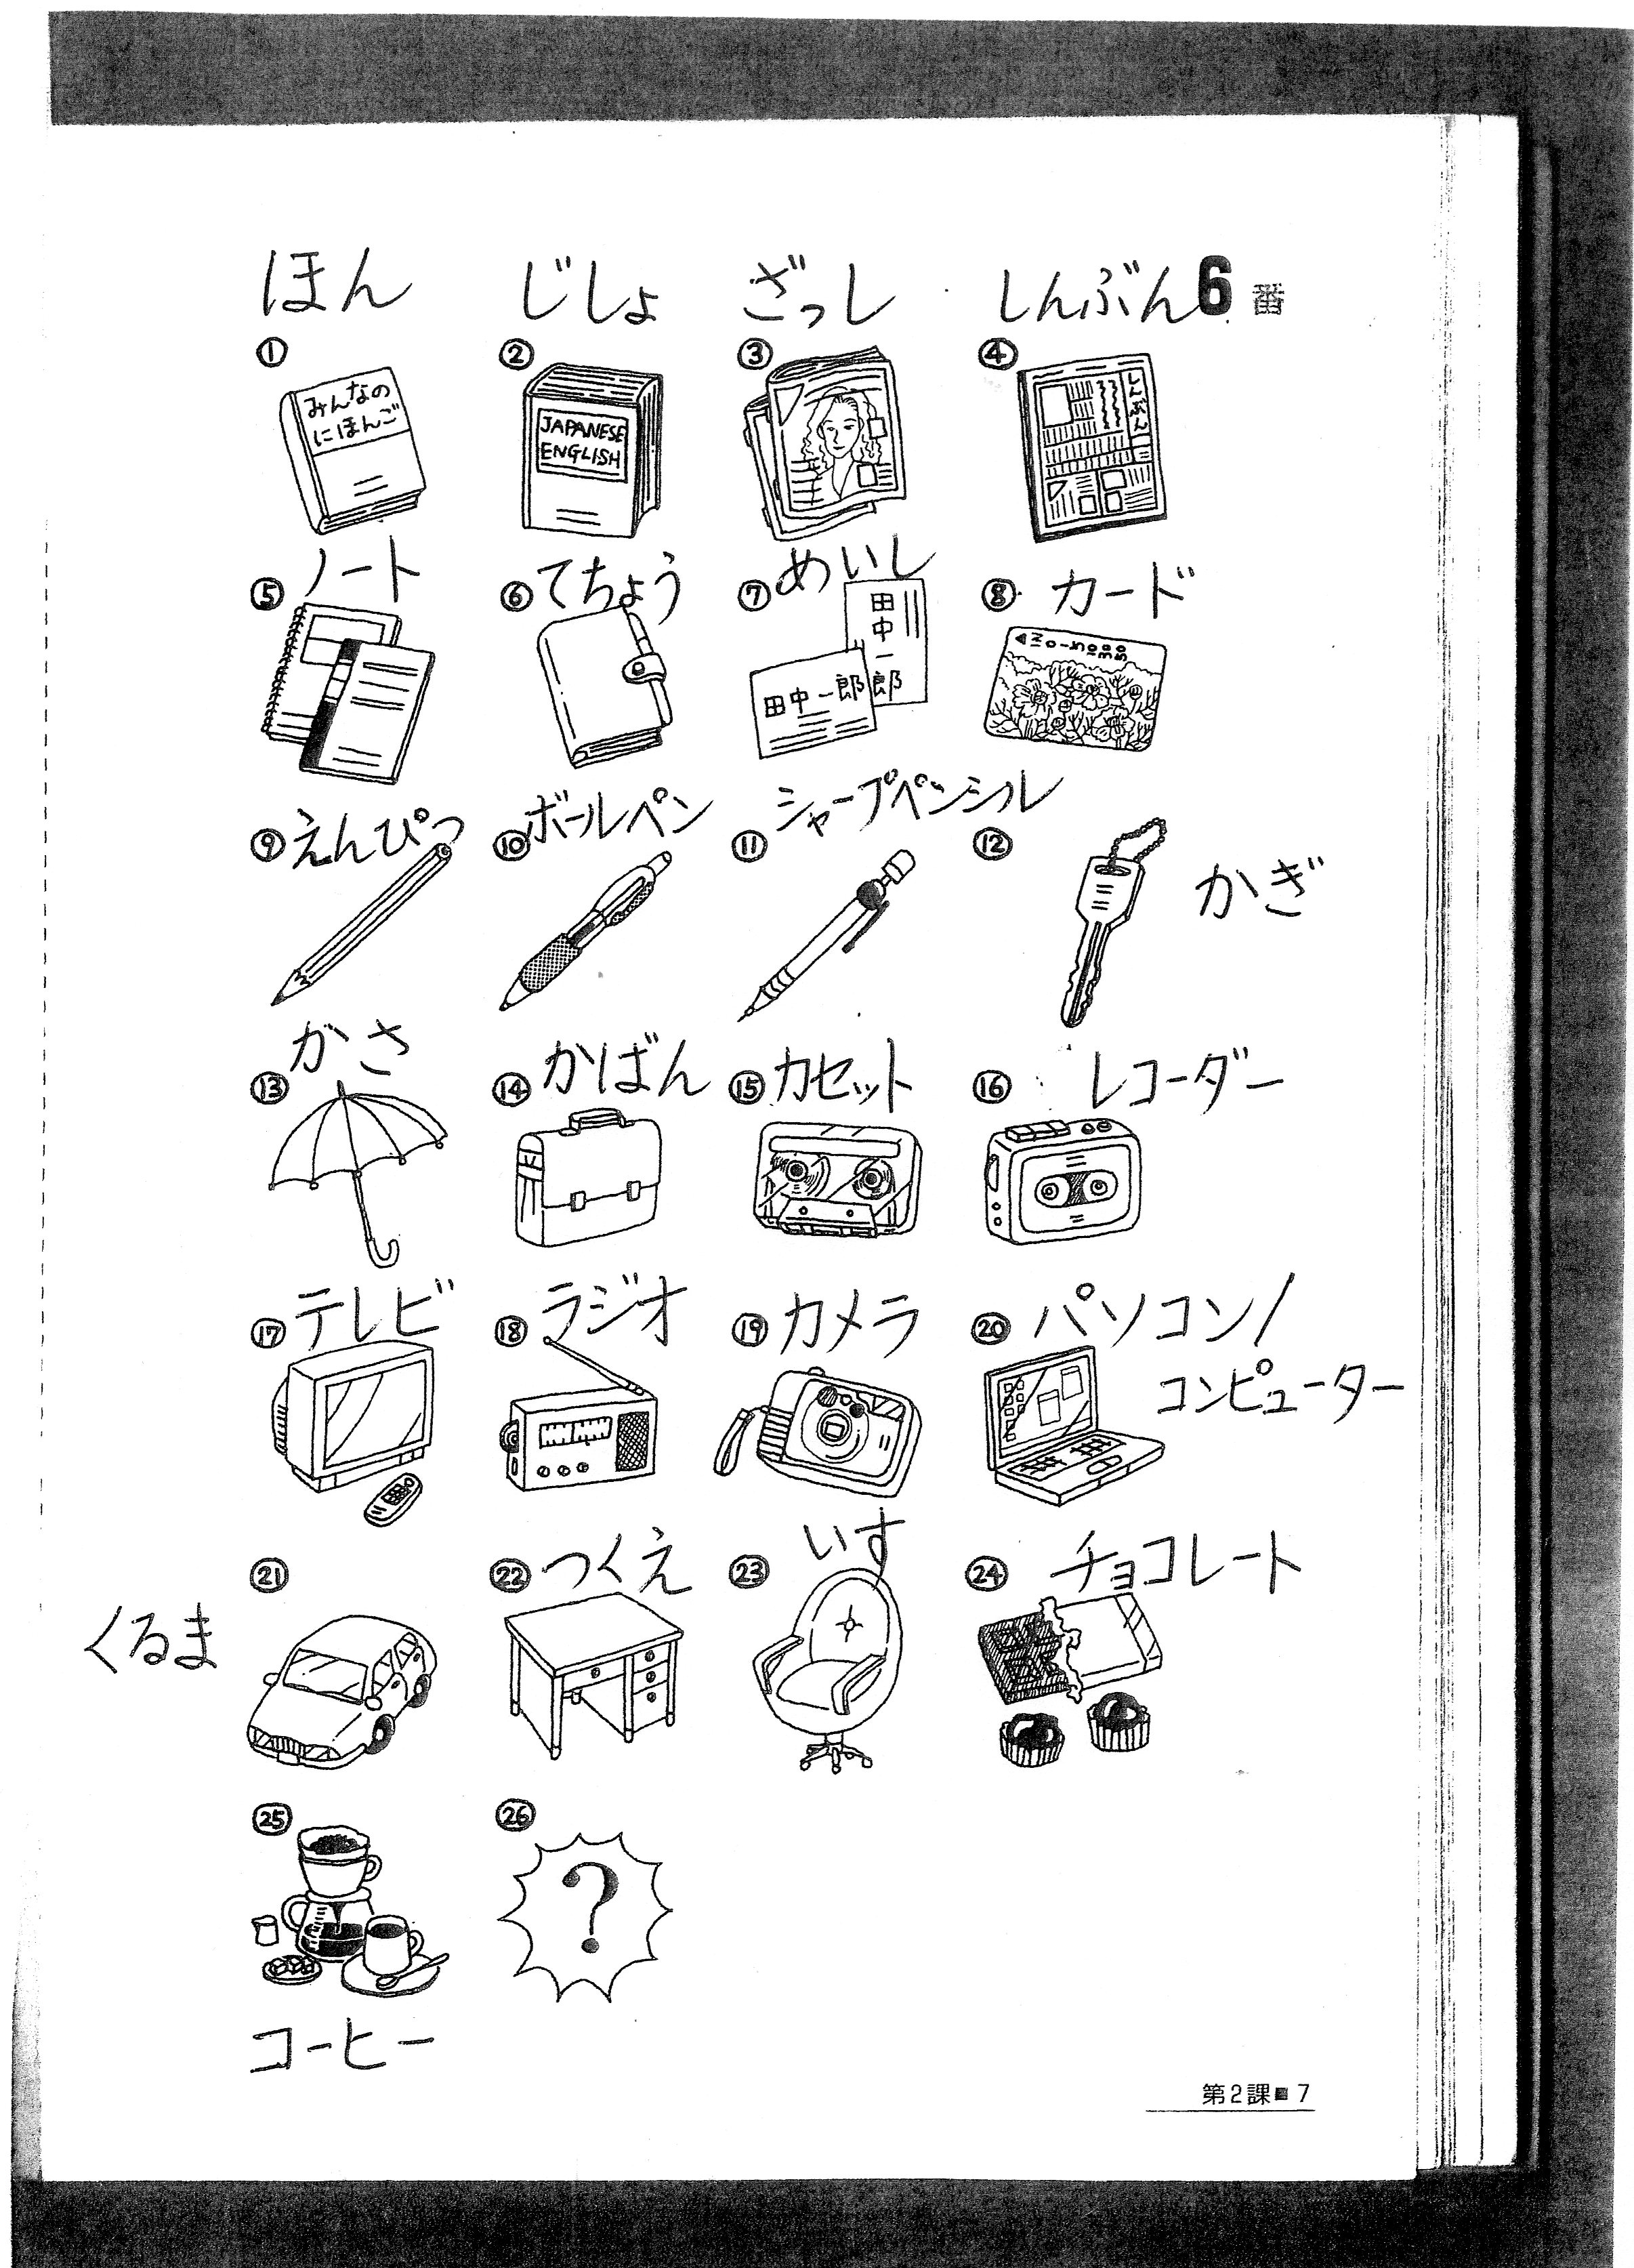 ほん じしょ ざっし しんぶん 6番
① ② ③ ④
みんなの
にほんご
JAPANESE
ENGLISH
しんぶん
⑤ ノート ⑥ てちょう ⑦ めいし ⑧ カード
田中一郎
田中一郎
⑨ えんぴつ ⑩ ボールペン ⑪ シャープペンシル ⑫ かぎ
⑬ かさ ⑭ かばん ⑮ カセット ⑯ レコーダー
⑰ テレビ ⑱ ラジオ ⑲ カメラ ⑳ パソコン/
コンピューター
㉑ くるま ㉒ つくえ ㉓ いす ㉔ チョコレート
㉕ ㉖
?
コーヒー
第2課■7